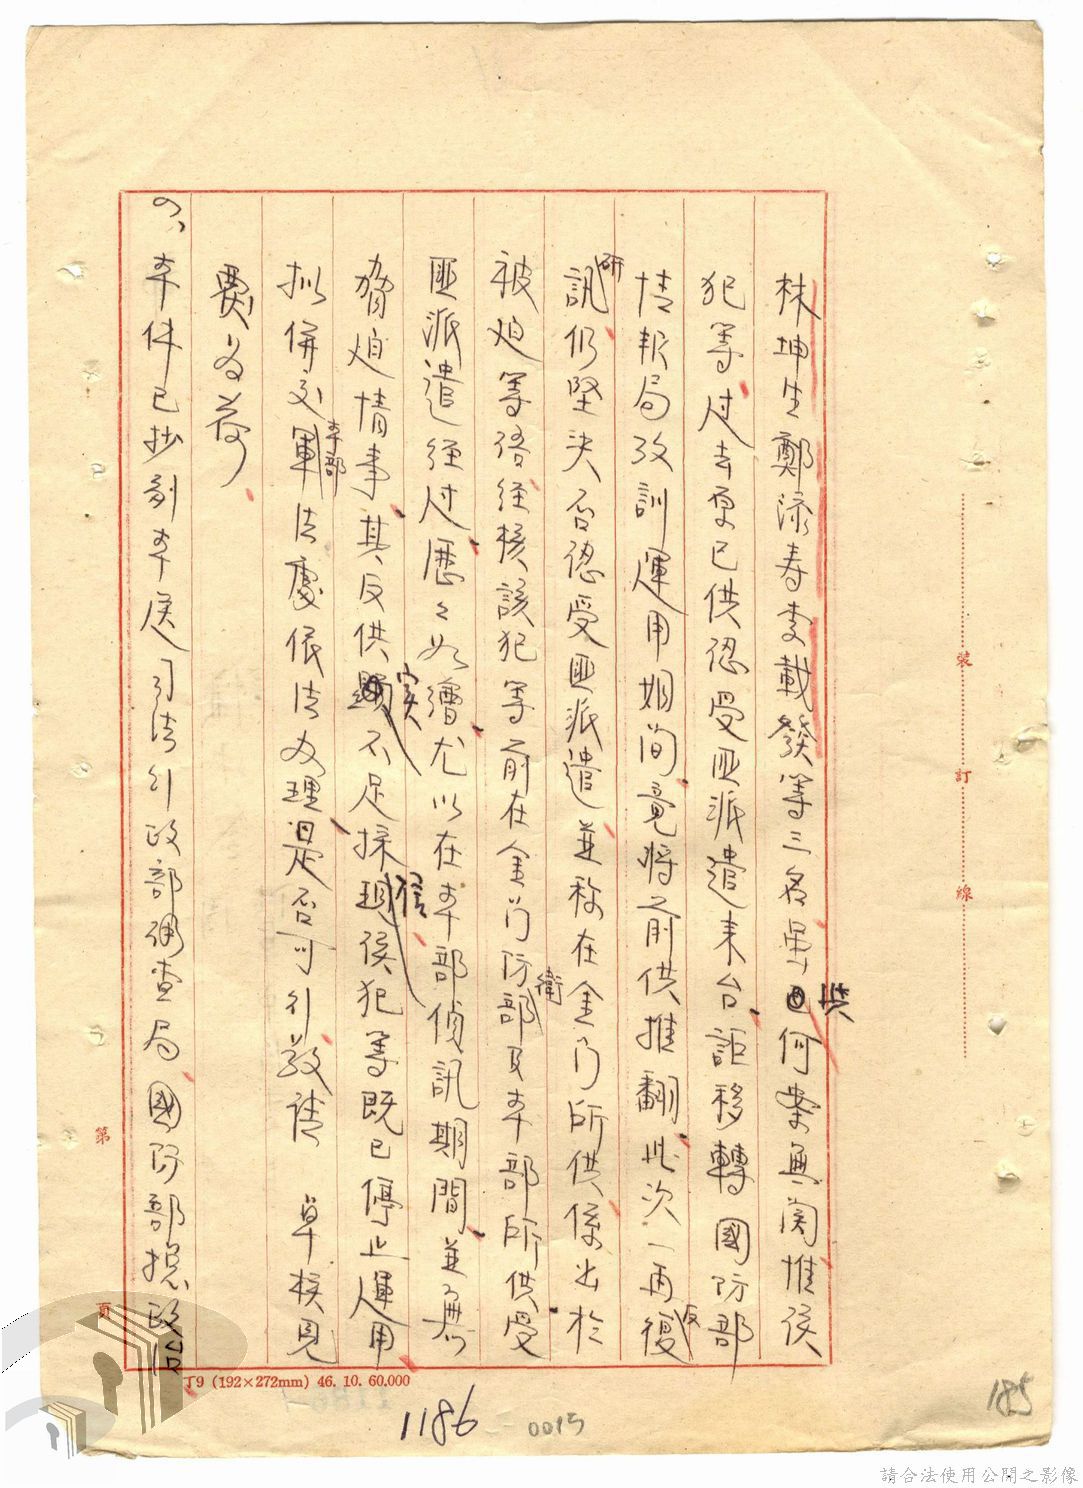 林坤生鄭添壽李載發等三名與供何案無関惟侯
犯等过去原已供認受匪派遣来台詎移轉國防部
情报局改訓運用期间竟將前供推翻此次一再復反
研訊仍堅決否認受匪派遣並称在金门所供係出於
被迫等语经核該犯等前在金门防衛部及本部所供受
匪派遣经过歷之如繪尤以在本部偵訊期間並無
脅迫情事其反供实不足採信侯犯等既已停止運用
拟併交本部軍法處依法办理是否可行敬请 卓核見
覆为荷
本件已抄副本送司法行政部调查局國防部總政
裝
訂
線
第
頁
丁9 (192×272mm) 46. 10. 60,000
1186
0015
185
請合法使用公開之影像